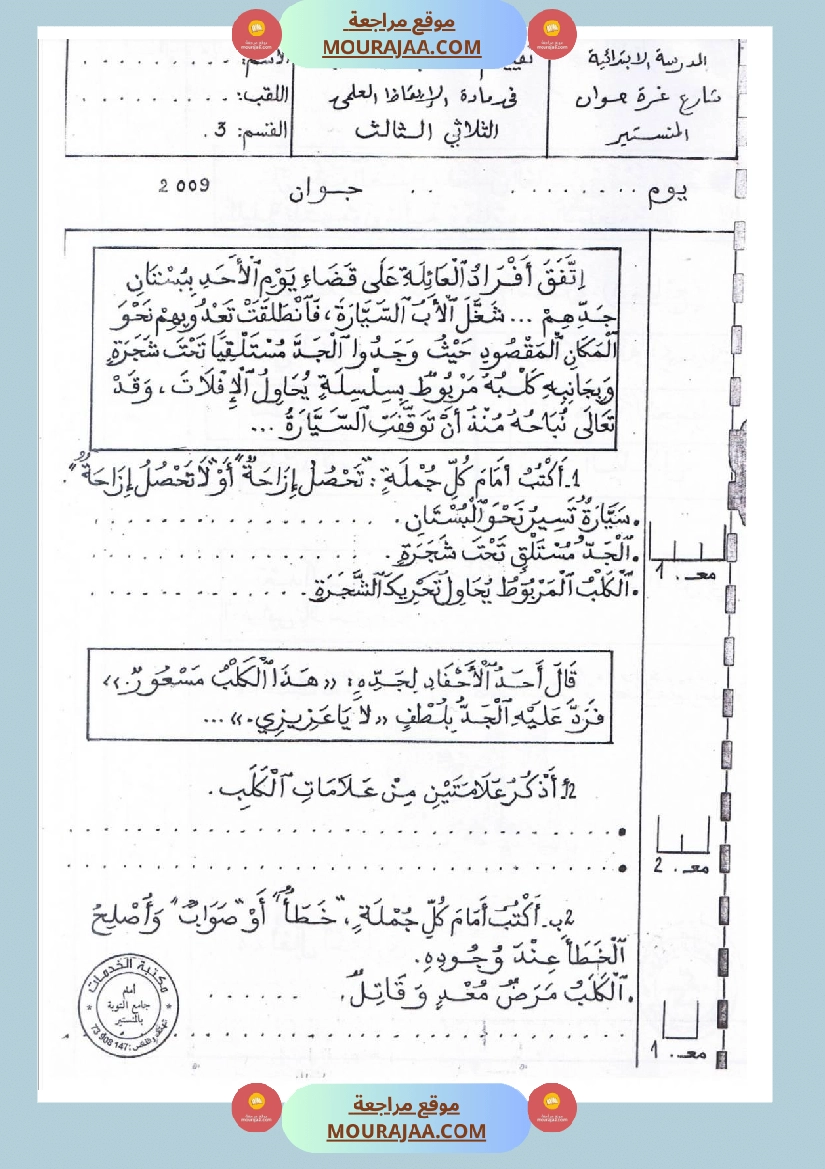 موقع مراجعة
MOURAJAA.COM
المدرسة الابتدائية
شارع غرة جوان
المنستير
في مادة الإيقاظ العلمي
الثلاثي الثالث
الاسم: . . . . . . . . .
اللقب: . . . . . . . . .
القسم: 3 .
يوم . . . . . . . . . . . جوان 2009
اِتَّفَقَ أَفْرَادُ الْعَائِلَةِ عَلَى قَضَاءِ يَوْمِ الْأَحَدِ بِبُسْتَانِ
جَدِّهِمْ ... شَغَّلَ الْأَبُ السَّيَّارَةَ، فَانْطَلَقَتْ تَعْدُو بِهِمْ نَحْوَ
الْمَكَانِ الْمَقْصُودِ حَيْثُ وَجَدُوا الْجَدَّ مُسْتَلْقِيًا تَحْتَ شَجَرَةٍ
وَبِجَانِبِهِ كَلْبُهُ مَرْبُوطٌ بِسِلْسِلَةٍ يُحَاوِلُ الْإِفْلَاتَ، وَقَدْ
تَعَالَى نُبَاحُهُ مُنْذُ أَنْ تَوَقَّفَتِ السَّيَّارَةُ ...
1ـ أَكْتُبُ أَمَامَ كُلِّ جُمْلَةٍ: "تَحْصُلُ إِزَاحَةٌ" أَوْ "لَا تَحْصُلُ إِزَاحَةٌ".
• سَيَّارَةٌ تَسِيرُ نَحْوَ الْبُسْتَانِ. . . . . . . . . . . . . . . . .
• الْجَدُّ مُسْتَلْقٍ تَحْتَ شَجَرَةٍ. . . . . . . . . . . . . . . . .
• الْكَلْبُ الْمَرْبُوطُ يُحَاوِلُ تَحْرِيكَ الشَّجَرَةِ. . . . . . . . . . . . .
معـ . 1
قَالَ أَحَدُ الْأَحْفَادِ لِجَدِّهِ: «هَذَا الْكَلْبُ مَسْعُورٌ.»
فَرَدَّ عَلَيْهِ الْجَدُّ بِلُطْفٍ «لَا يَا عَزِيزِي.» ...
2أ ـ أَذْكُرُ عَلَامَتَيْنِ مِنْ عَلَامَاتِ الْكَلَبِ.
• . . . . . . . . . . . . . . . . . . . . . . . . . . . . . .
• . . . . . . . . . . . . . . . . . . . . . . . . . . . . . .
معـ . 2
2ب ـ أَكْتُبُ أَمَامَ كُلِّ جُمْلَةٍ، "خَطَأٌ" أَوْ "صَوَابٌ" وَأُصْلِحُ
الْخَطَأَ عِنْدَ وُجُودِهِ.
• الْكَلَبُ مَرَضٌ مُعْدٍ وَ قَاتِلٌ. . . . . . .
. . . . . . . . . . . . . . . . . . . . . . . . . . . . . .
معـ . 1
مكتبة الخدمات
أمام
جامع التوبة
بالمنستير
73 508 147
موقع مراجعة
MOURAJAA.COM